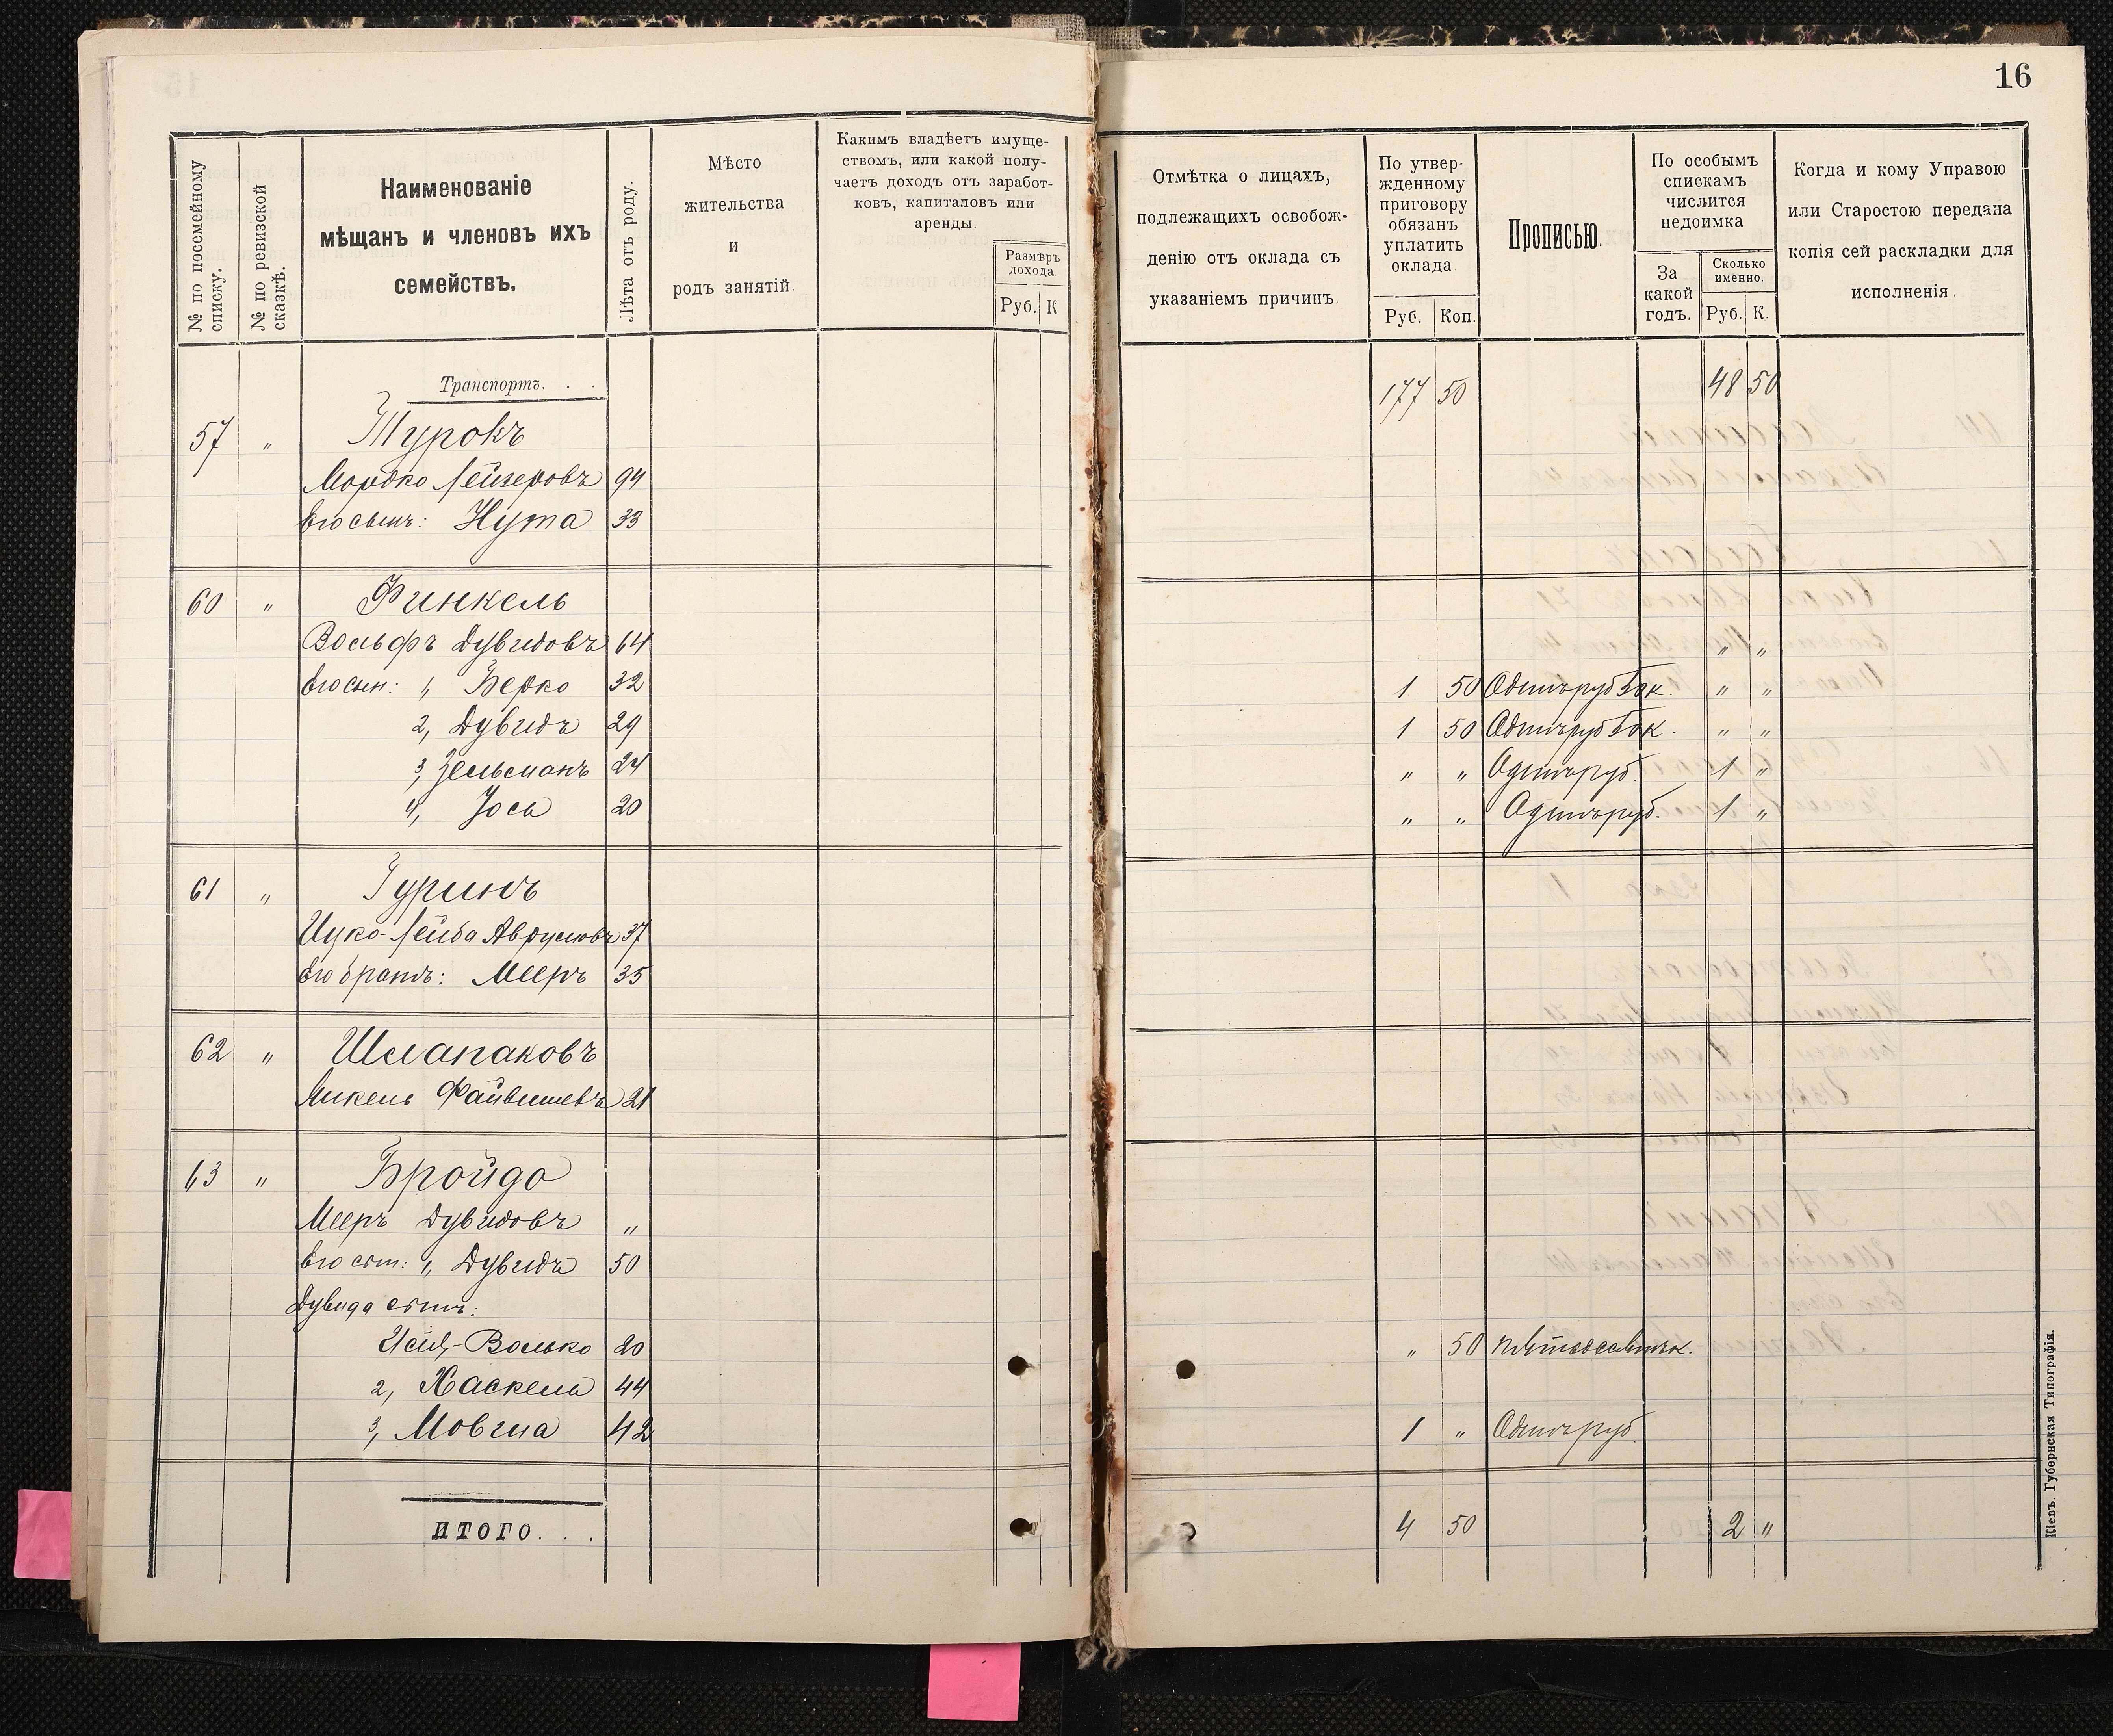 16
№ по посемейному списку.
№ по ревизской сказкѣ.
Наименованіе
мѣщанъ и членовъ ихъ
семействъ.
Лѣта отъ роду.
Мѣсто
жительства
и
родъ занятій.
Какимъ владѣетъ имуще-
ствомъ, или какой полу-
чаетъ доходъ отъ заработ-
ковъ, капиталовъ или
аренды.
Размѣръ
дохода.
Руб. К
Отмѣтка о лицахъ,
подлежащихъ освобож-
денію отъ оклада съ
указаніемъ причинъ.
По утвер-
жденному
приговору
обязанъ
уплатить
оклада
Руб. Коп.
Прописью.
По особымъ
спискамъ
числится
недоимка
За
какой
годъ.
Сколько
именно.
Руб. К.
Когда и кому Управою
или Старостою передана
копія сей раскладки для
исполненія.
Транспортъ. . . 177 50 48 50
57 " Турокъ
Мордко Лейзеровъ 94
Его сынъ: Нута 33
60 " Финкель
Вольфъ Дувидовъ 64 " "
Его сын: 1, Берко 32 1 50 Одинъ руб 50 к. " "
2, Дувидъ 29 1 50 Одинъ руб 50 к. " "
3, Зельманъ 24 " " Одинъ руб. 1 "
4, Іось 20 " " Одинъ руб. 1 "
61 " Гуринъ
Ицко-Лейба Аврумовъ 37
Его братъ: Мееръ 35
62 " Шлапаковъ
Янкель Файвишевъ 21
63 " Бройдо
Мееръ Дувидовъ "
Его сын: 1, Дувидъ 50
Дувида сынъ:
Волько 20 " 50 пятьдесятъ к.
2, Хаскель 44
3, Мовша 42 1 " Одинъ руб.
ИТОГО. . . 4 50 2 "
Кіевъ. Губернская Типографія.